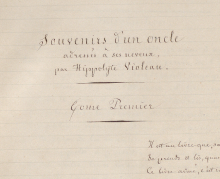 Souvenirs d'un oncle
adressés à ses neveux,
par Hippolyte Violeau.
Tome Premier
Il est un livre que, sa
Je prends et lis, qua
Ce livre aimé, c'est